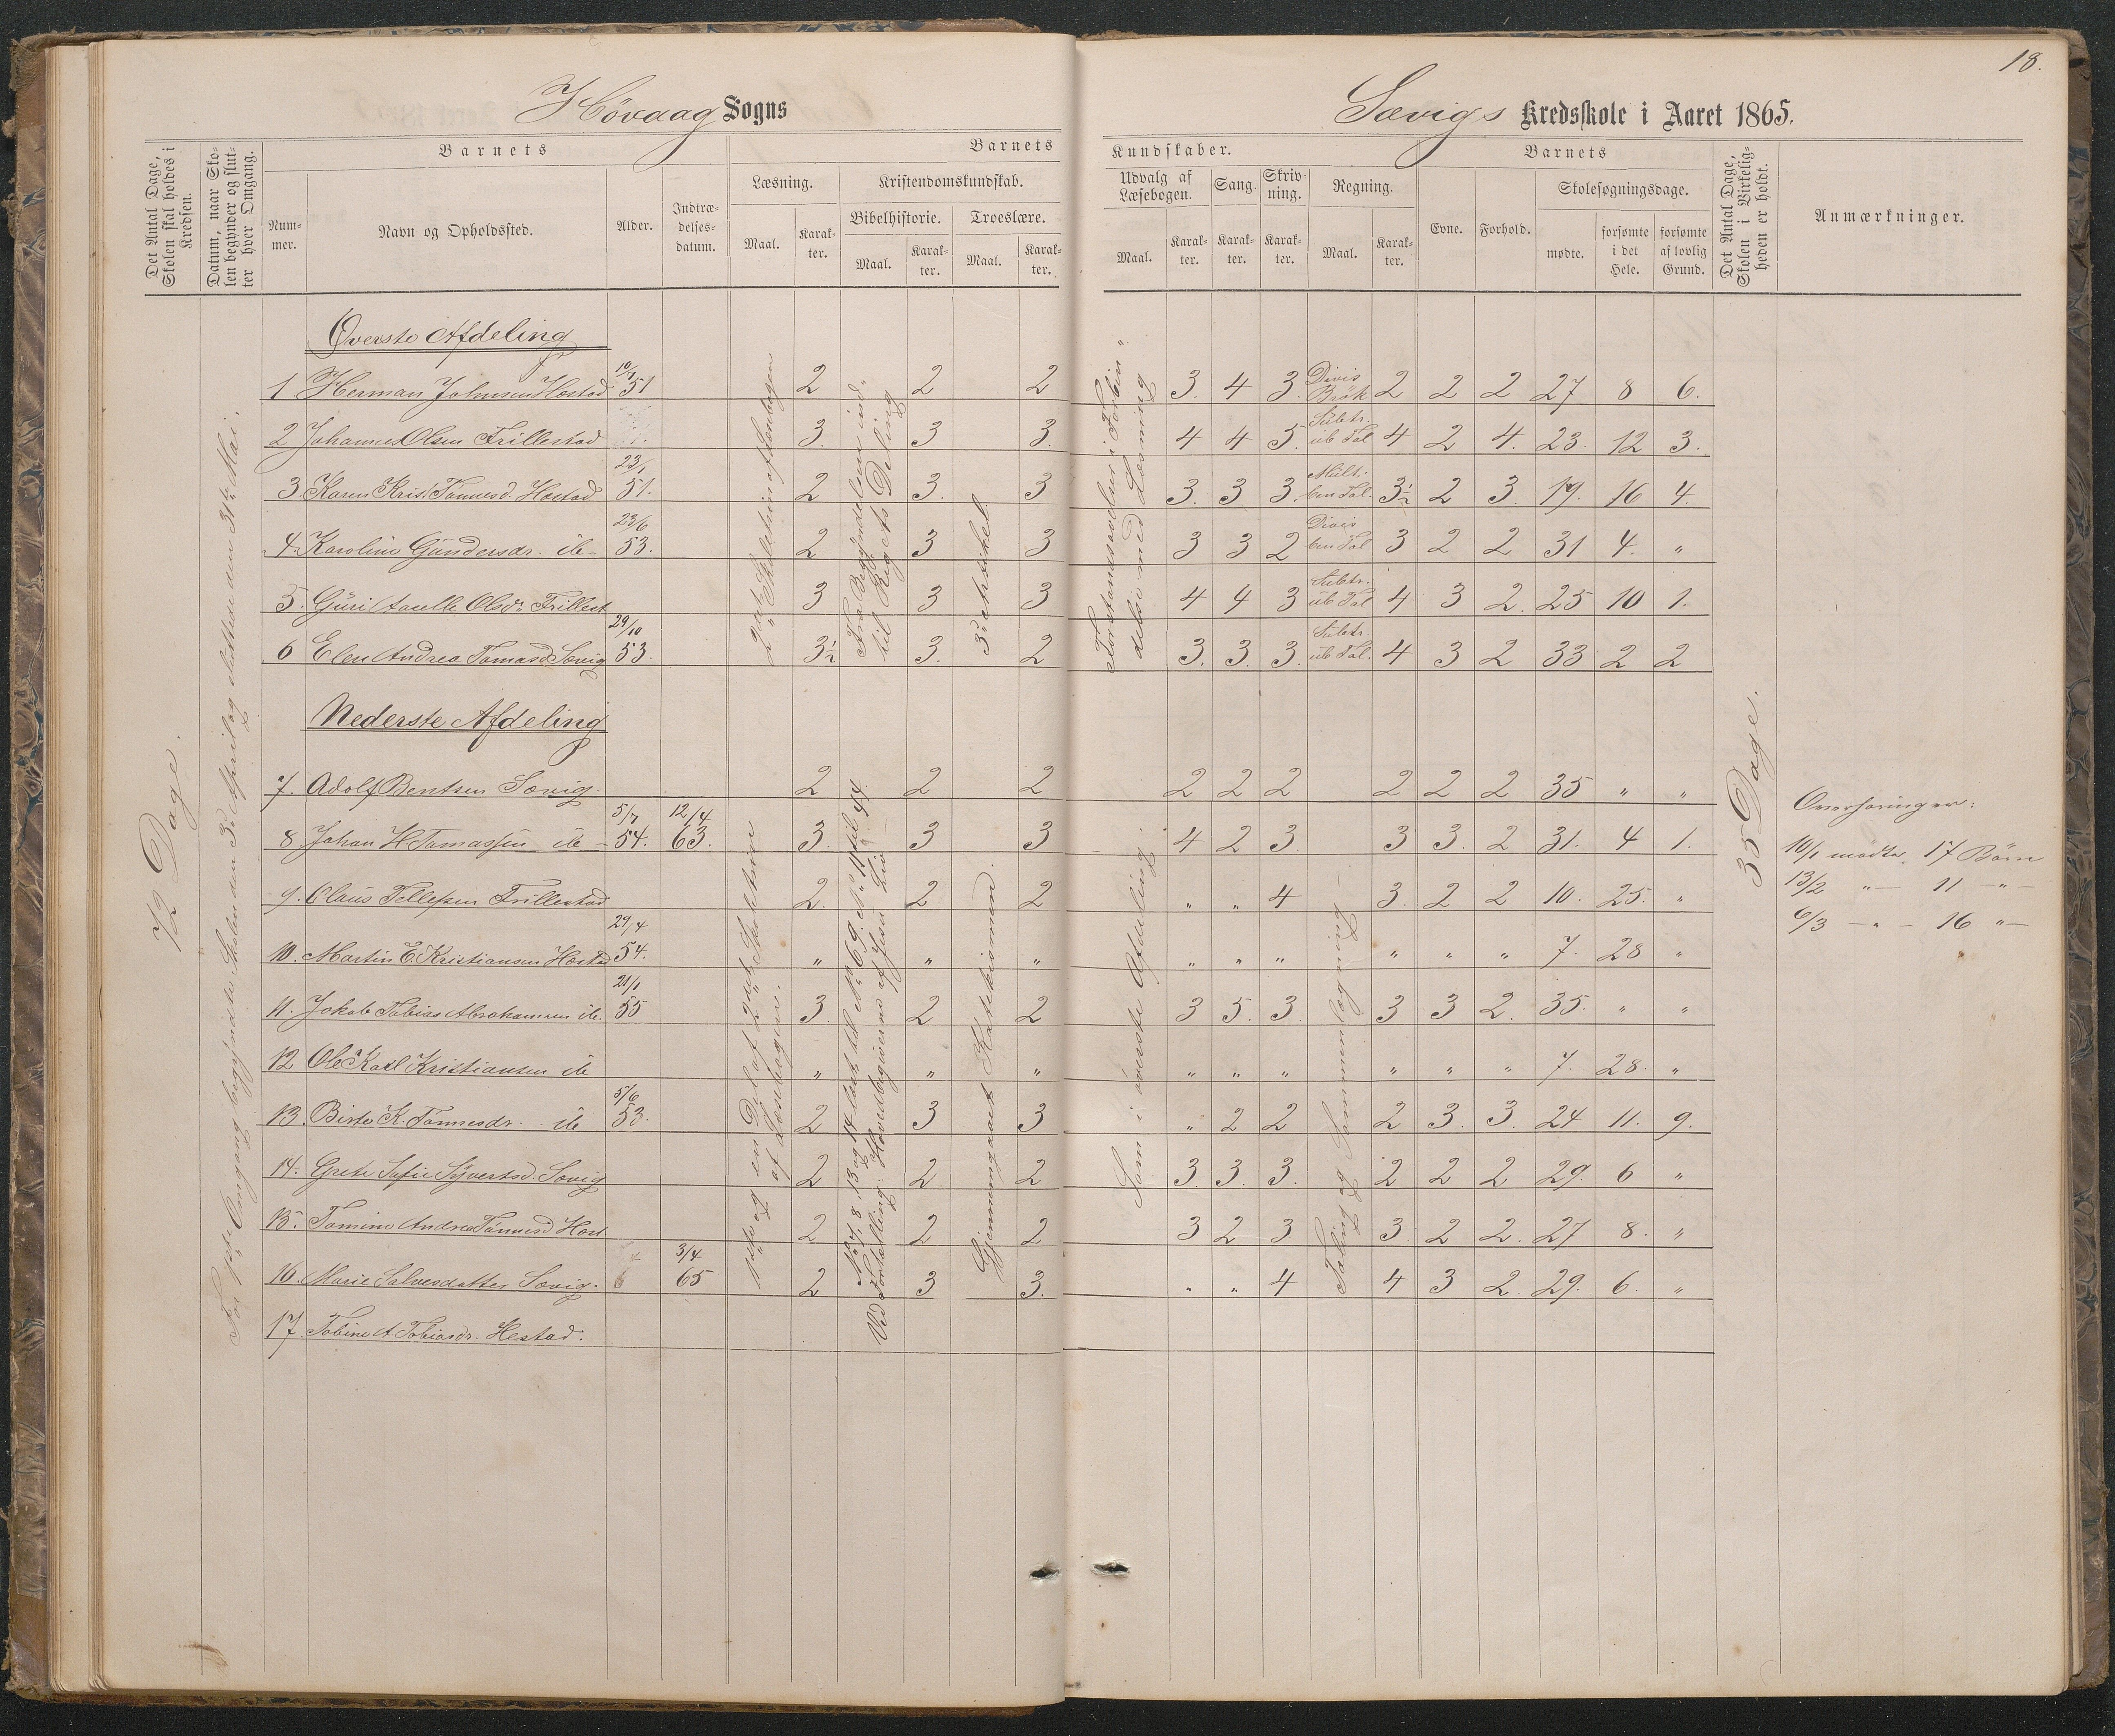 18.
Høvaag Sogns
Sævigs Kredsskole i Aaret 1865.
Det Antal Dage, Skolen skal holdes i Kredsen.
Datum, naar Skolen begynder og slutter hver Omgang.
Barnets
Nummer.
Navn og Opholdssted.
Alder.
Indtrædelsesdatum.
Barnets
Læsning.
Maal.
Karakter.
Kristendomskundskab.
Bibelhistorie.
Maal.
Karakter.
Troeslære.
Maal.
Karakter.
Kundskaber.
Udvalg af Læsebogen.
Maal.
Karakter.
Sang.
Karakter.
Skrivning.
Karakter.
Regning.
Maal.
Karakter.
Barnets
Evne.
Forhold.
Skolesøgningsdage.
mødte.
forsømte i det Hele.
forsømte af lovlig Grund.
Det Antal Dage, Skolen i Virkeligheden er holdt.
Anmærkninger.
72 Dage.
35 Dage.
Øverste Afdeling
1 Herman Johnsen Hæstad 10/7 51 2 2 2 3. 4 3. Divis Brøk 2 2 2 27 8 6.
2 Johannes Olsen Trillestad 3. 3 3. 4 4 5. Subtr. ub Tal 4 2 4. 23. 12 3.
3. Karen Kris. Tønnesd. Hæstad 23/1 51. 2 3. 3 3. 3 3. Mult. ben Tal 3½ 2 3. 19. 16 4.
4. Karoline Gundersdr. ib - 23/6 53. 2 3 3 3 3 2 Divis ben Tal 3 2 2 31 4. "
5. Guri Aaselle Olsdr. Trillest 3 3 3 4 4 3 Subtr. ub Tal 4 3 2. 25 10 1.
6 Elen Andrea Tomasd Sævig 29/10 53. 3½ 3. 2 3. 3. 3. Subtr. ub Tal. 4 3 2 33 2 2
Nederste Afdeling
7. Adolf Bentsen Sævig. 2 2 2 2 2 2 2 2 2 35 " "
8. Johan H. Tomassen ib - 5/7 54. 12/4 63. 3. 3 3 4 2 3. 3 3. 2 31. 4 1.
9. Claus Tellefsen Trillestad 2. 2 2 " " 4 3. 2 2 10. 25. "
10. Martin E. Kristiansen Hæstad 29/4 54. " " " " " " " " " 7. 28 "
11. Jakob Tobias Abrahamsen ib. 21/1 55 3. 2 2 3 5. 3. 3 3 2. 35. " "
12 Ole Karl Kristiansen ib " " " " " " " " " 7. 28. "
13. Birte K. Tønnesdr. ib 5/6 53. 2 3 3 " 2 2 2 3. 3. 24 11. 9.
14. Grete Sofie Syvertsd. Sævig 2 2 2 3. 3. 3. 2 2 2 29. 6 "
15. Tomine Andrea Tønnesd Hæst 2 2 2 3 2 3 3. 2 2. 27 8. "
16. Marie Salvesdatter Sævig. 3/4 65 2 3 3. " " 4 4 3 2. 29. 6. "
17. Tobine A. Tobiasdr. Hestad.
Før 1ste Omgang begyndte Skolen den 3die April og sluttede den 31te Mai.
Fra Begyndelsen ind-
til Rigets Deling
3die Artikel.
Forstandsøvelser i Forbin-
delse med Læsning
1ste og en Del af 2det Skoletrin
af Læsebogen.
Gjennemgaaet Katekismen.
Som i øverste Afdeling.
Tæling og Sammenlægning
Overhøringer:
10/1 mødte 17 Børn
13/2 " — 11 — " —
6/3 — " — 16 " —